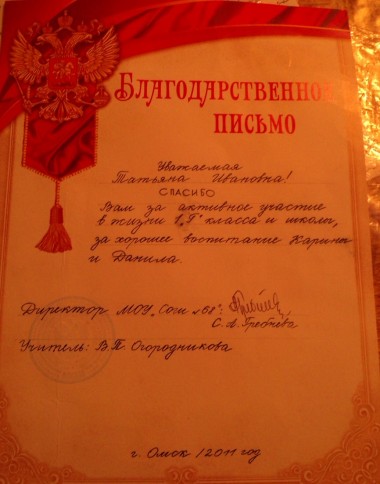 БЛАГОДАРСТВЕННОЕ
ПИСЬМО
Уважаемая
Татьяна Ивановна!
СПАСИБО
Вам за активное участие
в жизни 1 "Г" класса и школы,
за хорошее воспитание Карины
и Данила.
Директор МОУ "Сош №61"
С. А. Гребнёва
Учитель: В.П. Огородникова
г. Омск /2011 год